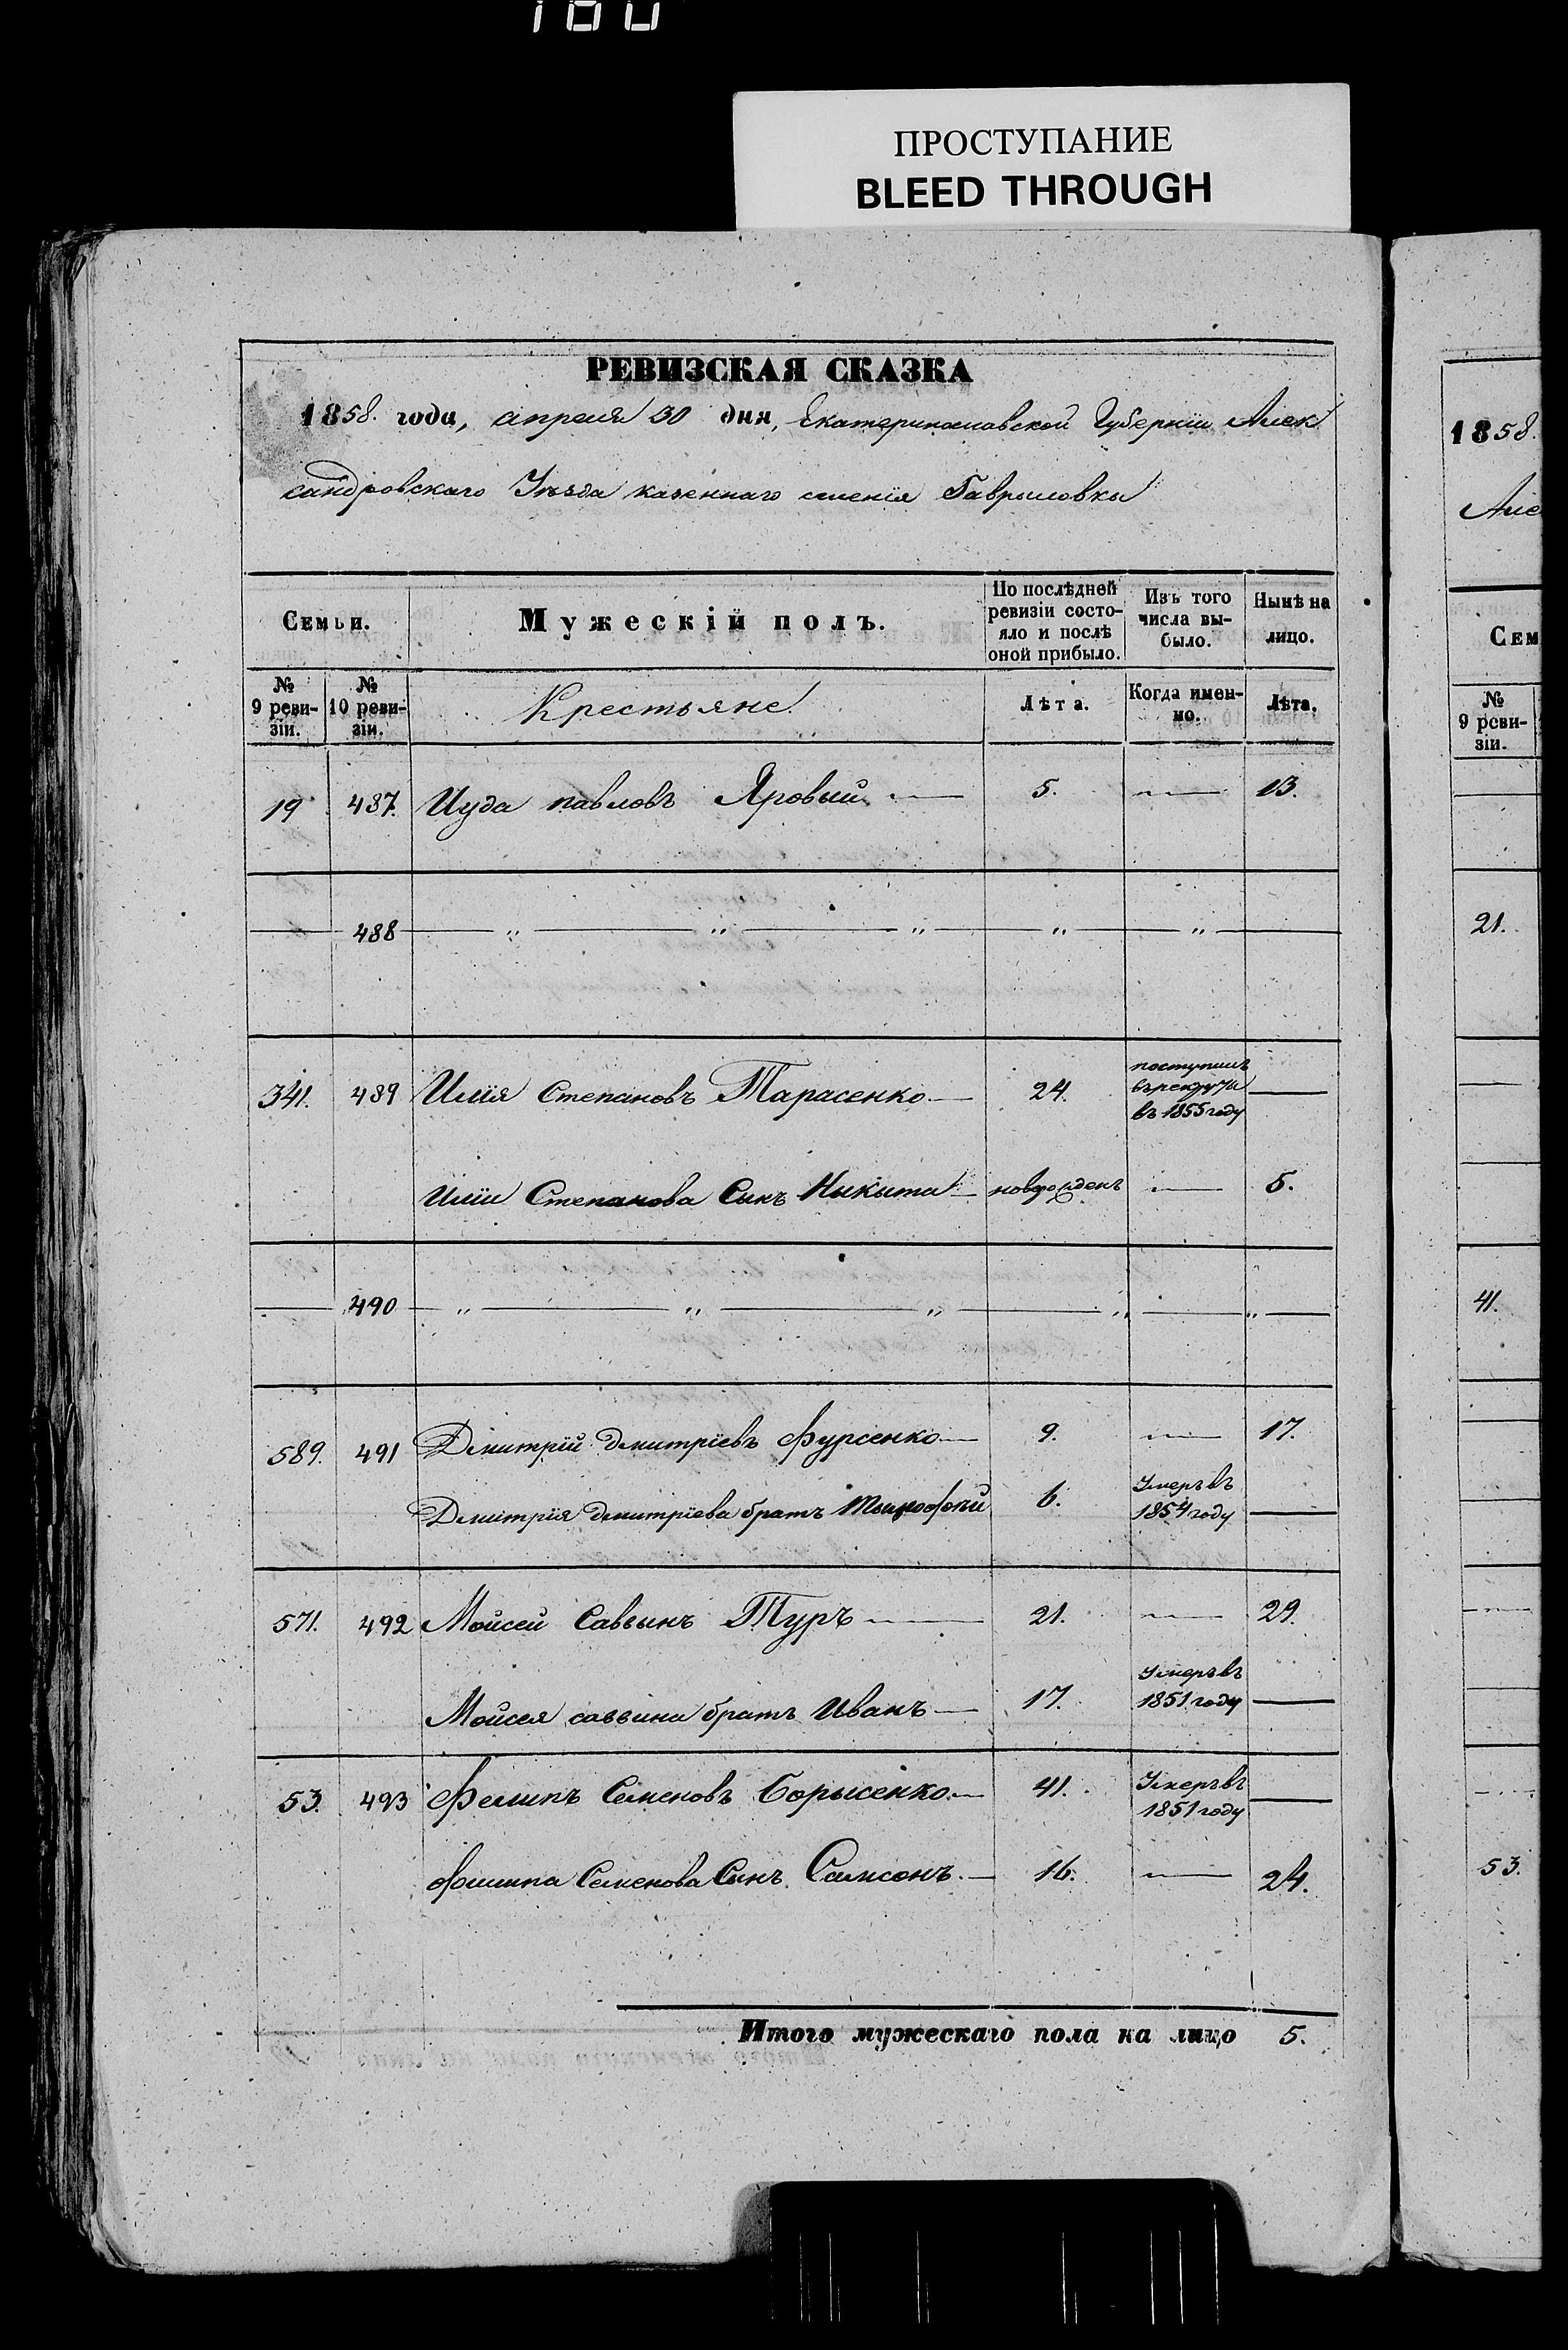 180
ПРОСТУПАНИЕ
BLEED THROUGH
РЕВИЗСКАЯ СКАЗКА
1858. года, апреля 30 дня, Екатеринославской Губерніи Алек
сандровскаго Уѣзда казеннаго селенія Гаврыловкы
Семьи. Мужескій полъ. По послѣдней ревизіи состояло и послѣ оной прибыло. Изъ того числа выбыло. Нынѣ на лицо.
№ 9 ревизіи. № 10 ревизіи. Крестьяне Лѣта. Когда именно. Лѣта.
19 487. Иуда павловъ Яровый — 5. — 13.
— 488 — „ — „ — „ — „ — „ —
341. 489 Илія Степановъ Тарасенко — 24. поступилъ въ рекруты въ 1855 году —
Иліи Степанова Сынъ Никыта — новорожденъ — 5.
— 490 — „ — „ — „ — „ — „ —
589. 491 Дмитрій дмитріевъ Фурсенко — 9. — 17.
Дмитрія дмитріева братъ 6. Умеръ въ 1854 году —
571. 492 Мойсей Саввынъ Туръ — 21. — 29.
Мойсея саввина братъ Иванъ — 17. Умеръ въ 1851 году —
53. 493 Фелипъ Семеновъ Борысенко — 41. Умеръ въ 1851 году —
Филипа Семенова Сынъ Самсонъ. — 16. — 24.
Итого мужескаго пола на лицо 5.
1858.
Але
Сем
№ 9 ревизіи.
21.
41.
53.